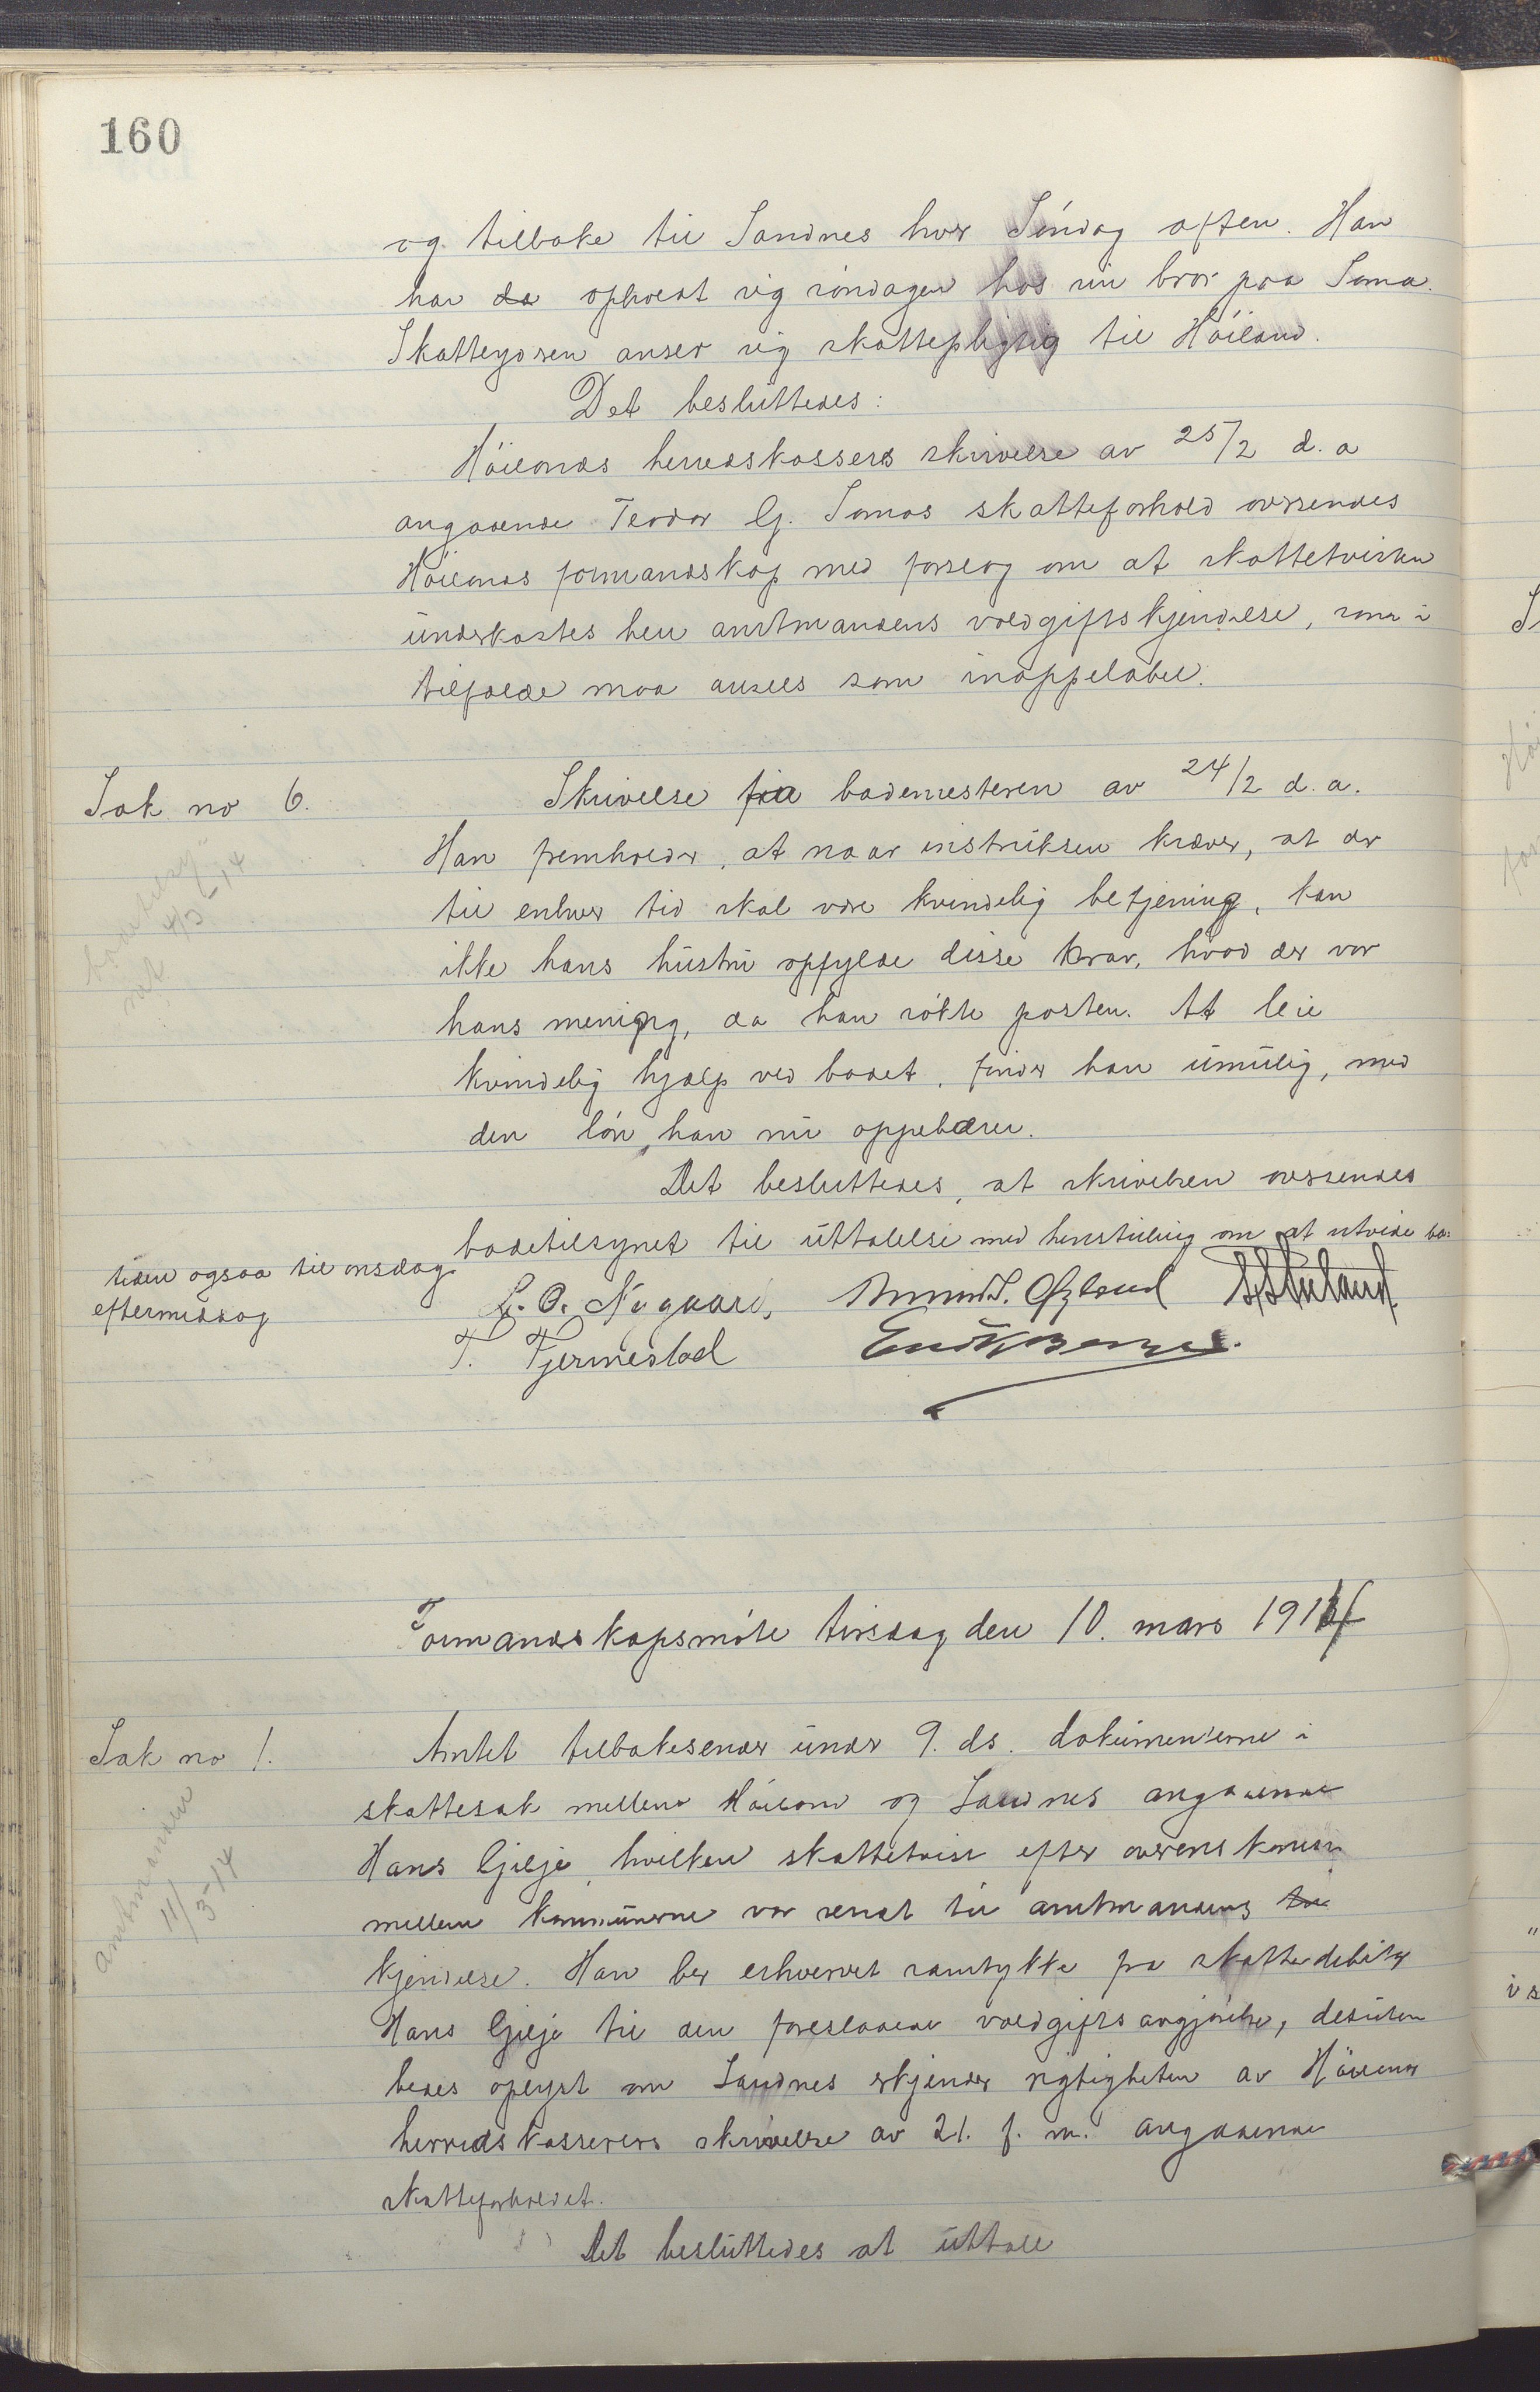 160
og tilbake til Sandnes hver Söndag aften. Han
har da opholdt sig söndagen hos sin bror paa Soma.
Skatteyderen anser sig skattepligtig til Höiland.
Det besluttedes:
Höilands herredskassers skrivelse av 25/2 d. a
angaaende Teodor G. Somas skatteforhold oversendes
Höilands formandskap med forslag om at skattetvisten
underkastes herr amtmandens voldgiftskjendelse, som i
tilfælde maa ansees som inappelabel.
Sak no 6.
Skrivelse fra bademesteren av 24/2 d. a.
Han fremholder, at naar instruksen kræver, at der
til enhver tid skal være kvindelig betjening, kan
ikke hans hustru opfylde disse krav, hvad der var
hans mening, da han sökte posten. At leie
kvindelig hjælp ved badet, finder han umulig, med
den lön, han nu oppebærer.
Det besluttedes, at skrivelsen oversendes
badetilsynet til uttalelse med henstilling om at utvide ba-
tiden ogsaa til onsdag
eftermiddag
badetilsyn
sak 4/3 - 14
L. O. Nygaard,
T. Tjermestad
Formandskapsmöte tirsdag den 10. mars 1914
Sak no 1.
Amtet tilbakesender under 9. ds. dokumenterne i
skattesak mellem Höiland og Sandnes angaaende
Hans Gilje, hvilken skattetvist efter overenskomst
mellem kommunerne var sendt til amtmandens
kjendelse. Han ber erhvervet samtykke fra skattedebitor
Hans Gilje til den foreslaaede voldgiftsavgjörelse, desuten
bedes oplyst om Sandnes erkjender rigtigheten av Höilands
herredskasserers skrivelse av 21. f. m. angaaende
skatteforholdet.
Amtmanden
11/3-14
Det besluttedes at uttale